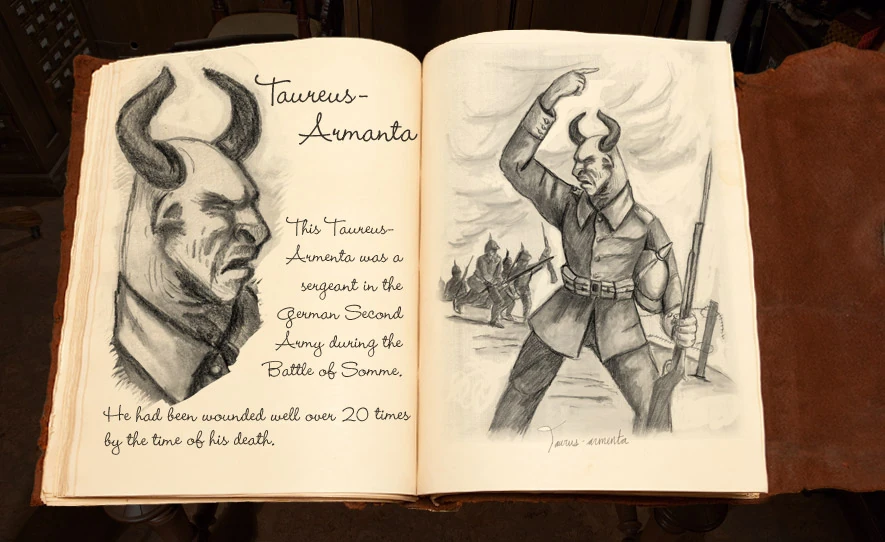 Taureus-
Armanta
This Taureus-
Armenta was a
sergeant in the
German Second
Army during the
Battle of Somme.
He had been wounded well over 20 times
by the time of his death.
Taurus-arminta